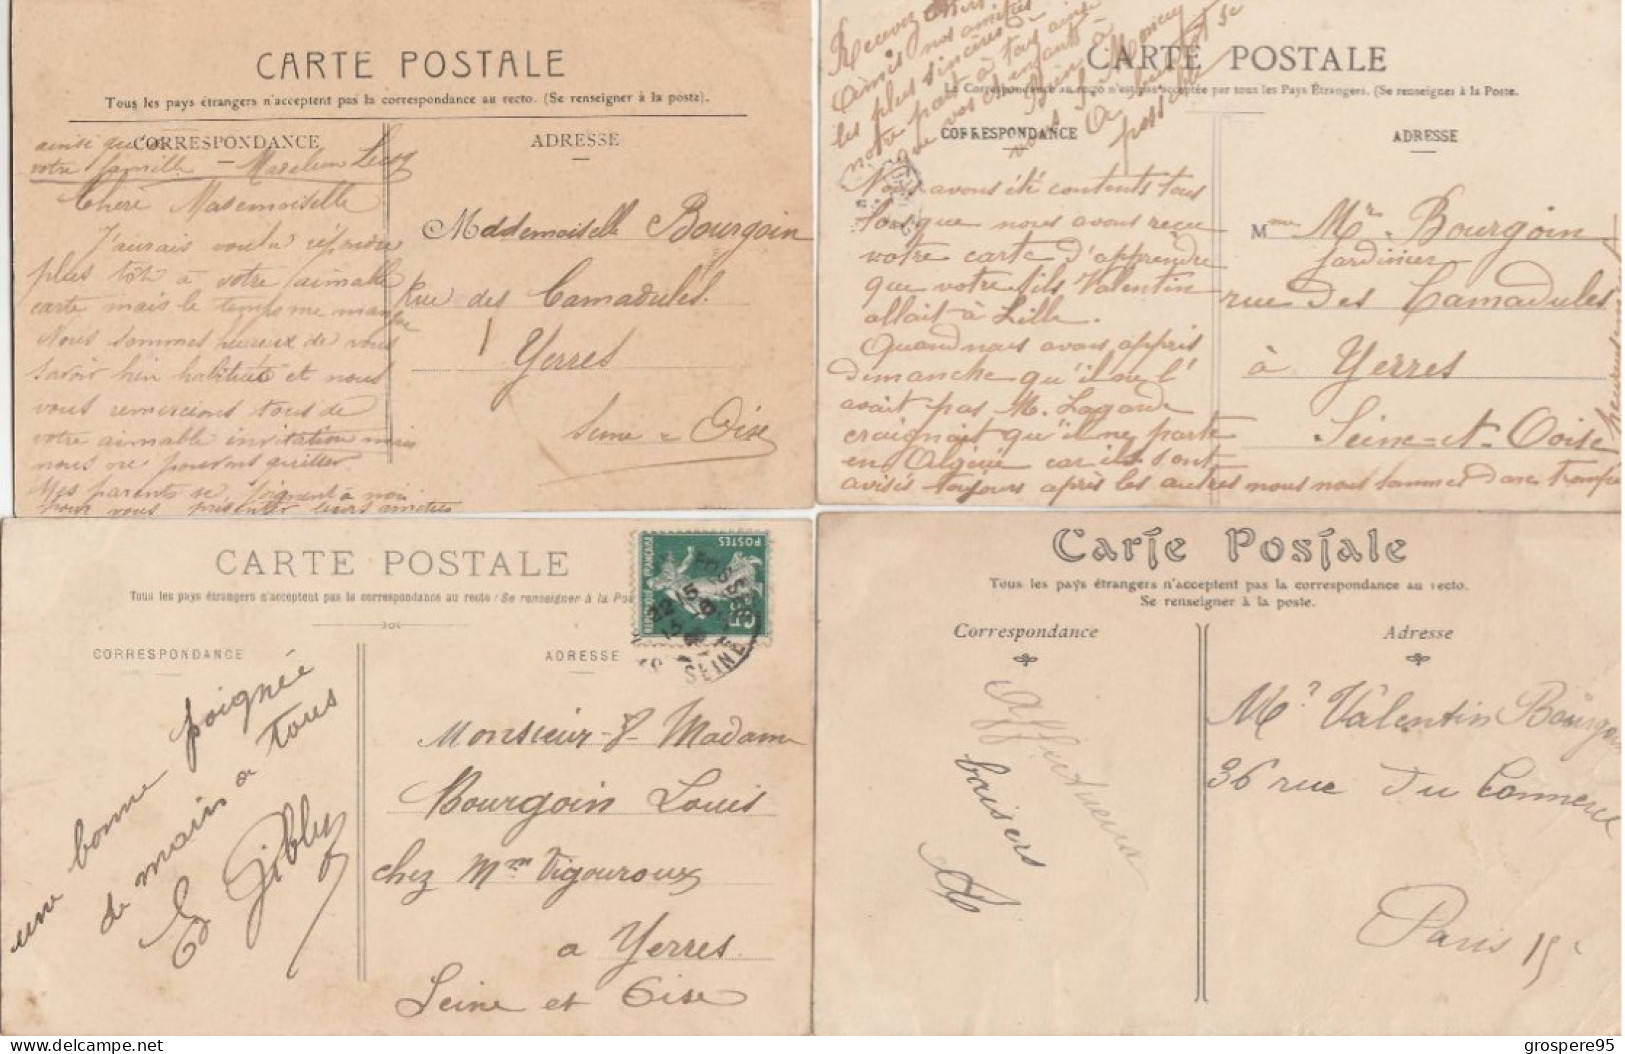 CARTE POSTALE
Tous les pays étrangers n'acceptent pas la correspondance au recto. (Se renseigner à la poste).
CORRESPONDANCE
ADRESSE
ainsi que
votre famille Madeleine
Chère Mademoiselle
J'aurais voulu répondre
plus tôt à votre aimable
carte mais le temps me manque
Nous sommes heureux de vous
savoir bien habitués et nous
vous remercions tous de
votre aimable invitation mais
nous ne pouvons quitter
Mes parents se joignent à moi
pour vous présenter leurs amitiés
Maddemoiselle Bourgoin
Rue des Camadules.
Yerres
Seine & Oise
Recevez chers
amis nos amitiés
les plus sincères
notre part à tous ainsi
que vos enfants à
CARTE POSTALE
La Correspondance au recto n'est pas acceptée par tous les Pays Étrangers. (Se renseigner à la Poste.
CORRESPONDANCE
ADRESSE
Nous avons été contents tous
lorsque nous avons reçu
votre carte d'apprendre
que votre fils Valentin
allait à Lille.
Quand nous avons appris
dimanche qu'il ne l'
avait pas M. Lagarde
craignait qu'il ne parte
en Algérie car ils sont
avisés toujours après les autres nous nous sommes donc trompé
heureusement
Mme Mr Bourgoin
jardinier
rue des Camadules
à Yerres
Seine-et-Ooise
CARTE POSTALE
Tous les pays étrangers n'acceptent pas la correspondance au recto (Se renseigner à la Po
CORRESPONDANCE
ADRESSE
RÉPUBLIQUE FRANÇAISE
POSTES
5c
SEINE
une bonne poignée
de main a tous
Monsieur & Madame
Bourgoin Louis
chez Mme Vigouroux
a Yerres
Seine et Oise
Carte Postale
Tous les pays étrangers n'acceptent pas la correspondance au recto.
Se renseigner à la poste.
Correspondance
Adresse
Affectueux
baisers
Mr Valentin Bourgoin
36 rue du Commerce
Paris 15
delcampe.net
grospere95